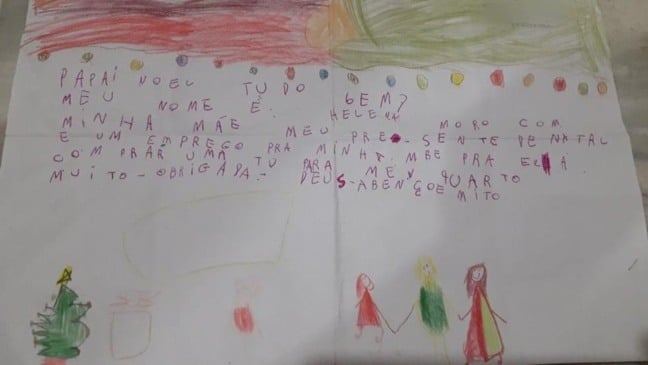 PAPAI NOEL TUDO BEM?
MEU NOME É HELENA
MINHA MÃE MORO COM
E UM EMPREGO PRA MINHA MEU PRE-SENTE DE NATAL
COMPRAR UMA TV PARA MEU QUARTO PRA ELA
MUITO-OBRIGADA- DEUS-ABENÇOE MITO